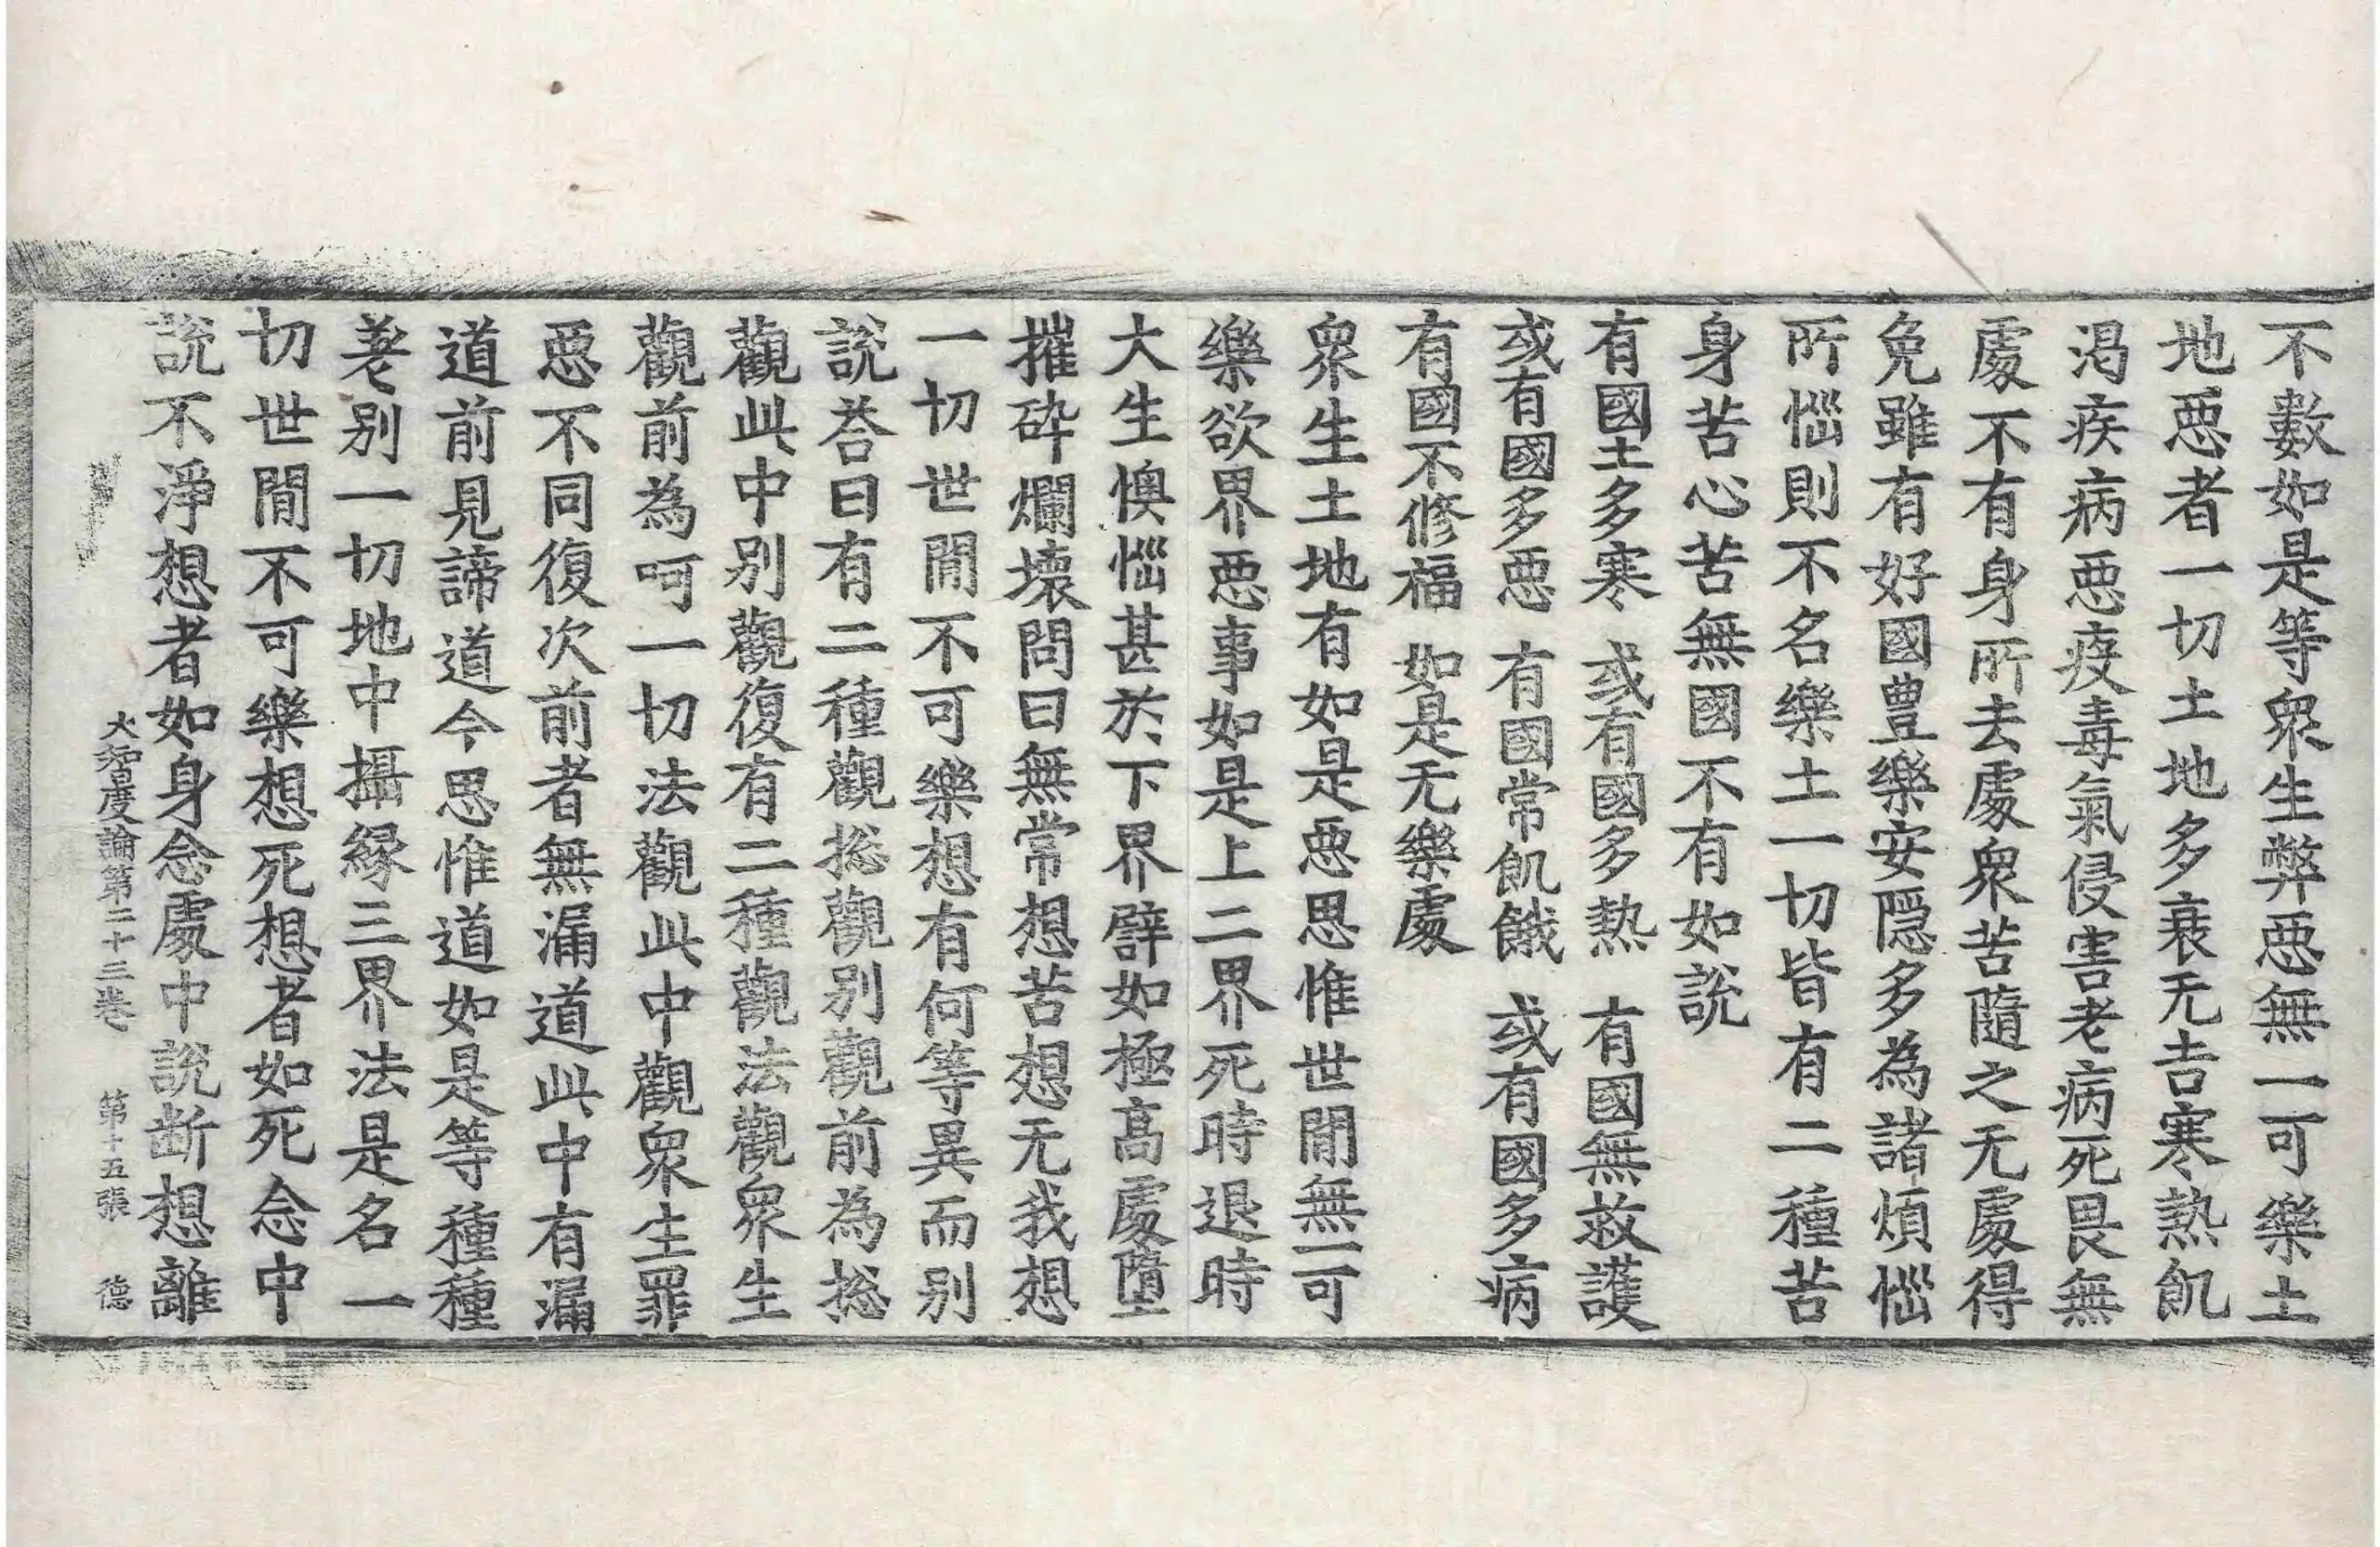 不數如是等衆生弊惡無一可樂土
地惡者一切土地多衰无吉寒熱飢
渴疾病惡疫毒氣侵害老病死畏無
處不有身所去處衆苦隨之无處得
免雖有好國豊樂安隱多為諸煩惱
所惱則不名樂土一切皆有二種苦
身苦心苦無國不有如說
有國土多寒　或有國多熱　有國無救護
或有國多惡　有國常飢餓　或有國多病
有國不修福　如是无樂處
衆生土地有如是惡思惟世閒無一可
樂欲界惡事如是上二界死時退時
大生懊惱甚於下界譬如極高處墮
摧碎爛壞問曰無常想苦想无我想
一切世閒不可樂想有何等異而别
說荅曰有二種觀捴觀别觀前為捴
觀此中别觀復有二種觀法觀衆生
觀前為呵一切法觀此中觀衆生罪
惡不同復次前者無漏道此中有漏
道前見諦道今思惟道如是等種種
差别一切地中攝緣三界法是名一
切世閒不可樂想死想者如死念中
說不淨想者如身念處中說断想離
大智度論第二十三卷　第十五張　德